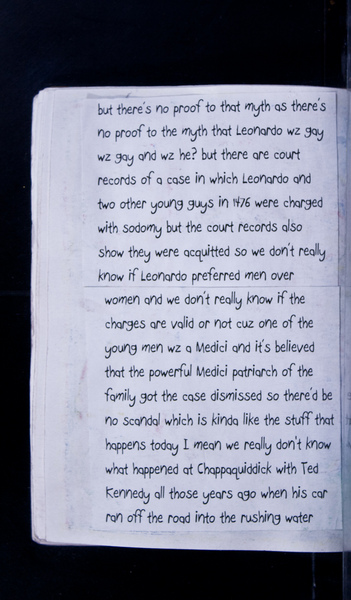 but there's no proof to that myth as there's
no proof to the myth that Leonardo wz gay
wz gay and wz he? but there are court
records of a case in which Leonardo and
two other young guys in 1476 were charged
with sodomy but the court records also
show they were acquitted so we don't really
know if Leonardo preferred men over
women and we don't really know if the
charges are valid or not cuz one of the
young men wz a Medici and it's believed
that the powerful Medici patriarch of the
family got the case dismissed so there'd be
no scandal which is kinda like the stuff that
happens today I mean we really don't know
what happened at Chappaquiddick with Ted
Kennedy all those years ago when his car
ran off the road into the rushing water